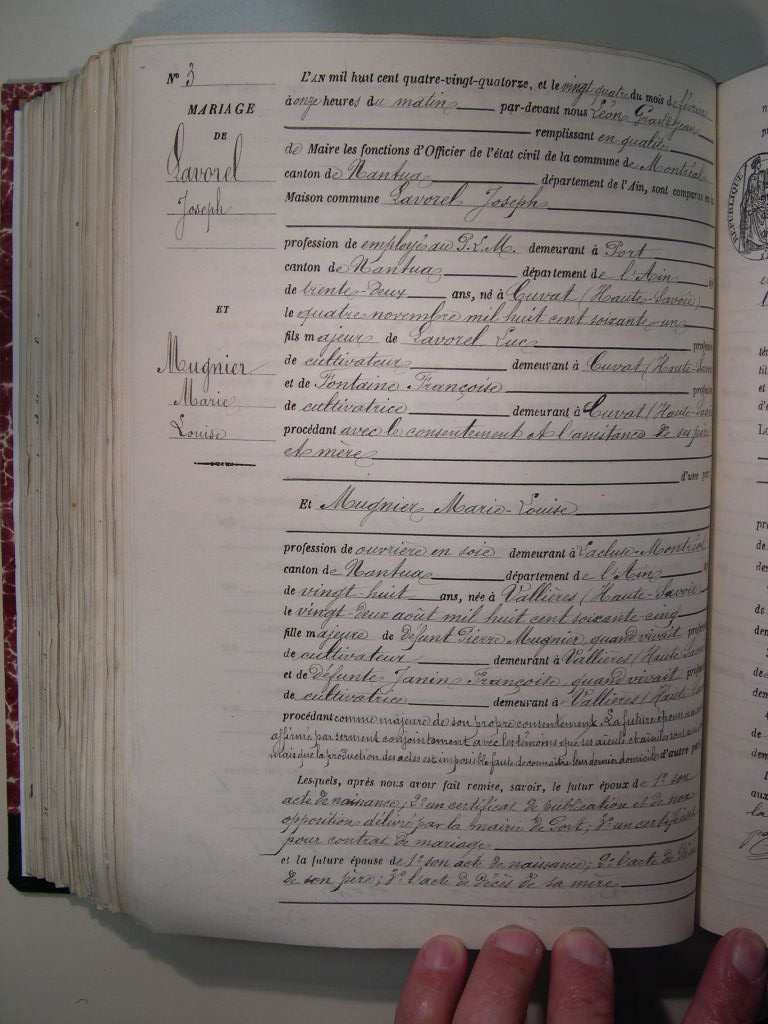 N° 3
MARIAGE
DE
Lavorel
Joseph
ET
Mugnier
Marie
Louise
L'AN mil huit cent quatre-vingt-quatorze, et le vingt quatre du mois de février
à onze heures du matin par-devant nous Léon
remplissant en qualité
de Maire les fonctions d'Officier de l'état civil de la commune de Montréal
canton de Nantua département de l'Ain, sont comparus en la
Maison commune Lavorel Joseph
profession de employé au P.L.M. demeurant à Port
canton de Nantua département de l'Ain
de trente-deux ans, né à Cuvat (Haute-Savoie)
le quatre novembre mil huit cent soixante-un
fils majeur de Lavorel Luc profess
de cultivateur demeurant à Cuvat (Haute-Savoie
et de Fontaine Françoise profess
de cultivatrice demeurant à Cuvat (Haute-Savoie
procédant avec le consentement et l'assistance de ses père
et mère
d'une par
Et Mugnier Marie-Louise
profession de ouvrière en soie demeurant à Lacluse-Montréal
canton de Nantua département de l'Ain
de vingt-huit ans, née à Vallières (Haute-Savoie
le vingt-deux août mil huit cent soixante-cinq
fille majeure de défunt Pierre Mugnier, quand vivait profess
de cultivateur demeurant à Vallières (Haute-Savoie
et de défunte Janin Françoise quand vivait profess
de cultivatrice demeurant à Vallières (Haute-Savoie
procédant comme majeure de son propre consentement. La future épouse
affirmé par serment conjointement avec les témoins que ses aïeuls et aïeules sont
mais que la production des actes est impossible faute de connaître leur dernier domicile d'autre part
Lesquels, après nous avoir fait remise, savoir, le futur époux de 1° son
acte de naissance; 2° un certificat de publication et de non
opposition délivré par la mairie de Port; 3° un certificat
pour contrat de mariage
et la future épouse de 1° son acte de naissance; 2° l'acte de décès
de son père; 3° l'acte de décès de sa mère
RÉPUBLIQUE